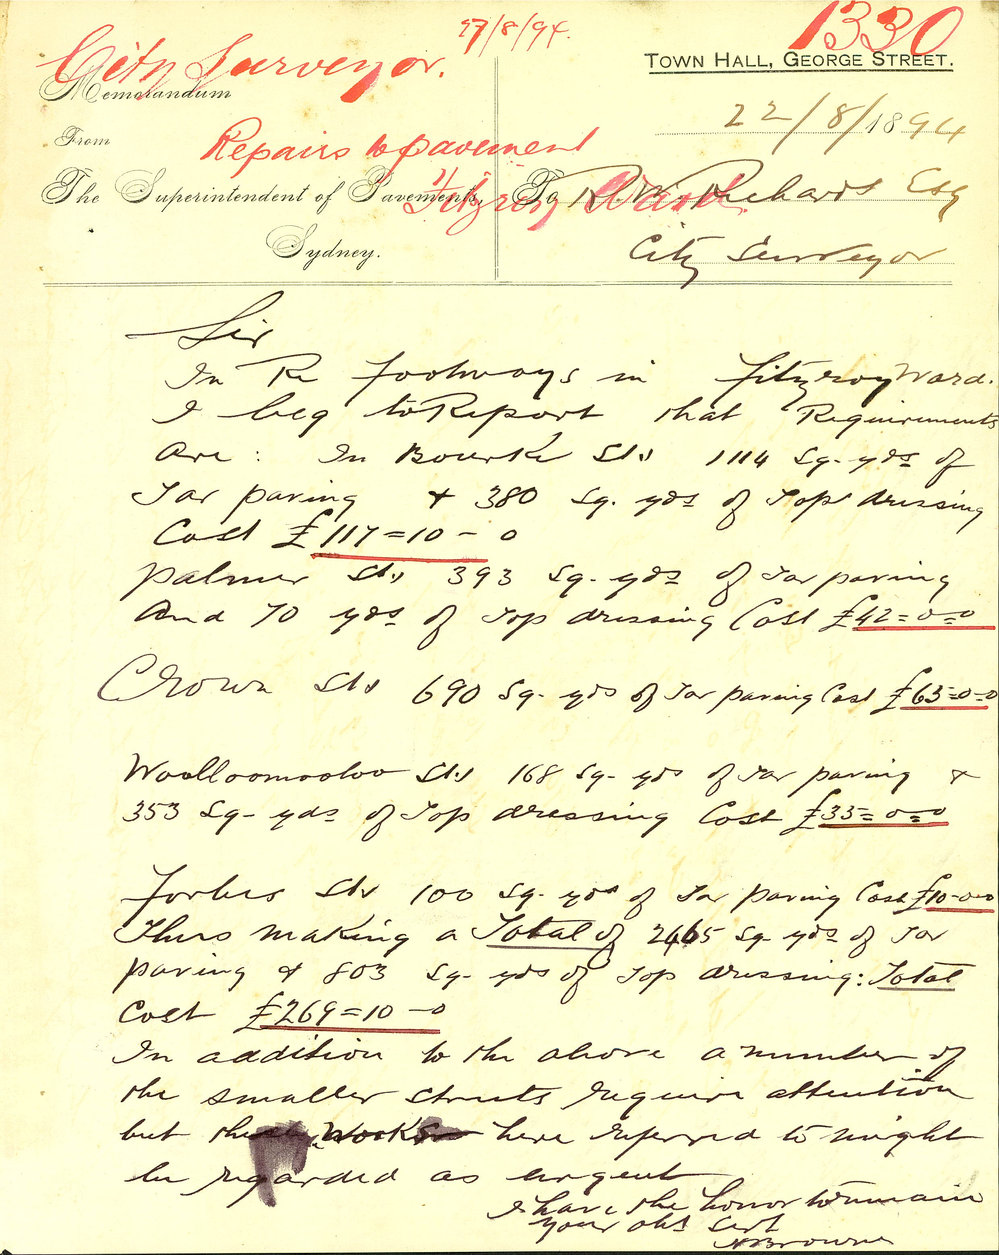 27/8/94.
1330
City Surveyor.
TOWN HALL, GEORGE STREET.
Memorandum
22/8/1894
From
Repairs to pavement
The Superintendent of Pavements,
Fitzroy Ward.
To R. W. Richards Esq
Sydney.
City Surveyor
Sir
In Re footways in Fitzroy Ward.
I beg to Report that Requirements
Are: In Bourke St, 1114 Sq. yds of
Tar paving & 380 Sq. yds of Top dressing
Cost £117=10-0
palmer St, 393 Sq. yds of Tar paving
And 70 yds of Top dressing Cost £42=0=0
Crown St, 690 Sq. yds of Tar paving Cost £63=0=0
Woolloomooloo St, 168 Sq. yds of Tar paving &
353 Sq. yds of Top dressing Cost £33=0=0
Forbes St, 100 Sq. yds of Tar paving Cost £10-0-0
Thus making a Total of 2465 Sq. yds of Tar
paving & 803 Sq. yds of Top dressing: Total
Cost £269=10-0
In addition to the above a number of
the smaller streets require attention
but the works here referred to might
be regarded as urgent
I have the honor to remain
your obt Servt
A Browne